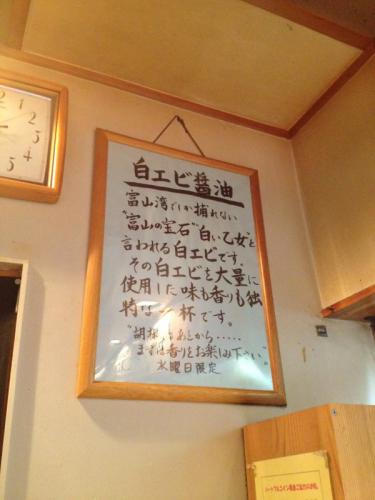 白エビ醤油
富山湾でしか捕れない
"富山の宝石""白い乙女"と
言われる白エビです。
その白エビを大量に
使用した味も香りも独
特な一杯です。
"胡椒はあとから.....
まずは香りをお楽しみ下さい"
水曜日限定
12
1
2
3
4
5